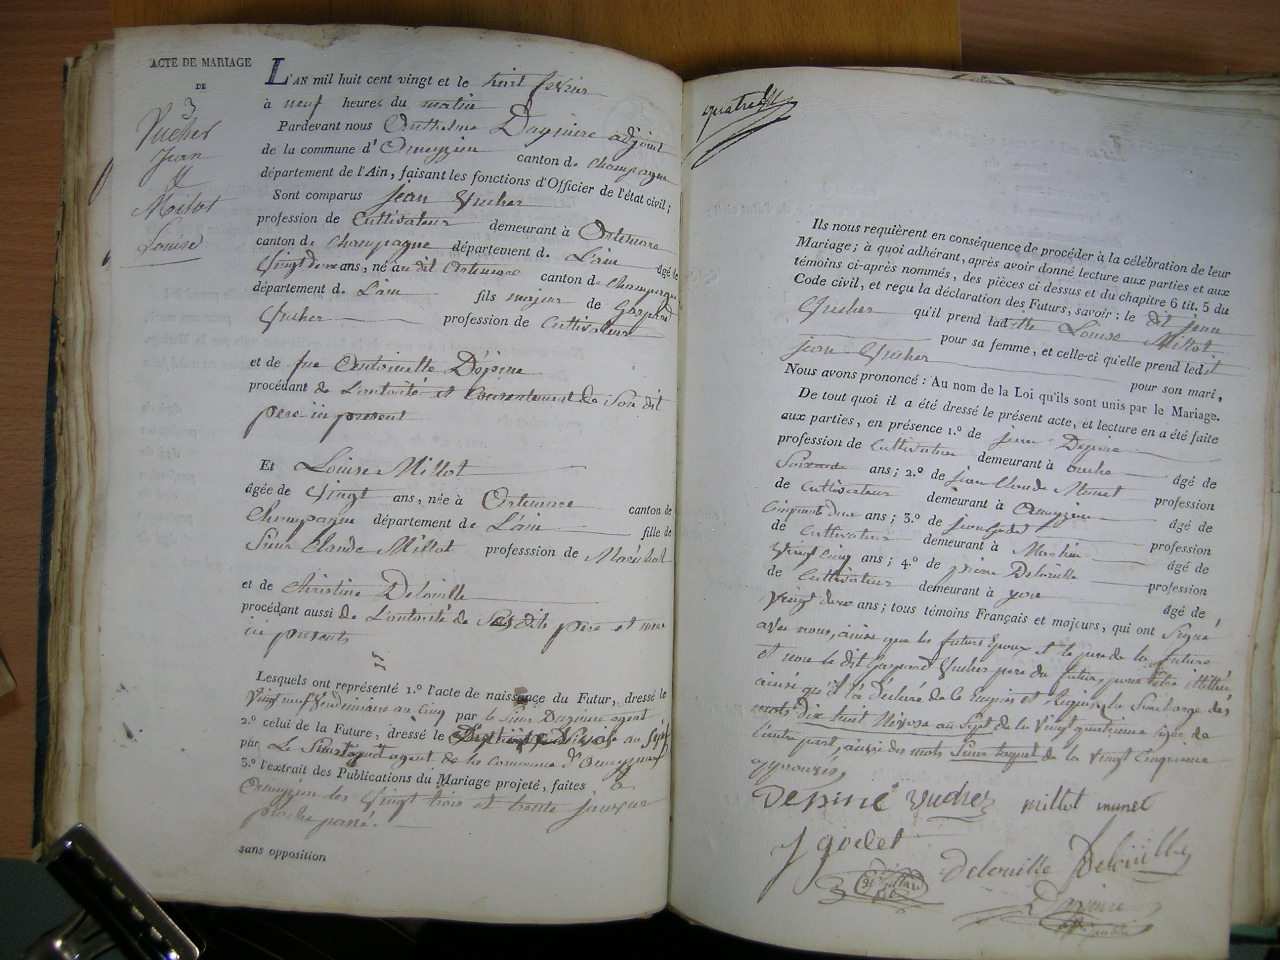 ACTE DE MARIAGE
DE
3
Vucher
Jean
&
Millot
Louise
L'AN mil huit cent vingt et le huit fevrier
à neuf heures du matin
Pardevant nous Anthelme adjoint
de la commune d' canton de Champagne
département de l'Ain, faisant les fonctions d'Officier de l'état civil;
Sont comparus Jean Vucher
profession de Cultivateur demeurant à
canton de Champagne département de L'ain âgé de
Vingt deux ans, né au dit canton de Champagne
département de L'ain fils majeur de Gaspard
Vucher profession de Cultivateur
et de feue Antoinette Dépine
procédant de L'autorité et Consentement de Son dit
pere ici present
Et Louise Millot
âgée de Vingt ans, née à canton de
Champagne département de L'ain fille de
Sieur Claude Millot professsion de Maréchal
et de Christine Delouille
procédant aussi de L'autorité de Ses dits pere et mere
ici presents
Lesquels ont représenté 1.º l'acte de naissance du Futur, dressé le
Vingt neuf Vendemiaire an Cinq par le Sieur agent
2.º celui de la Future, dressé le an Sept
par Le Sieur agent de la Commune
3.º l'extrait des Publications du Mariage projeté, faites à
les Vingt trois et trente janvier
proche passé.
sans opposition
Ils nous requièrent en conséquence de procéder à la célébration de leur
Mariage; à quoi adhérant, après avoir donné lecture aux parties et aux
témoins ci-après nommés, des pièces ci dessus et du chapitre 6 tit. 5 du
Code civil, et reçu la déclaration des Futurs, savoir: le dit jean
Vucher qu'il prend ladite Louise Millot
pour sa femme, et celle-ci qu'elle prend ledit
jean Vucher pour son mari,
Nous avons prononcé: Au nom de la Loi qu'ils sont unis par le Mariage.
De tout quoi il a été dressé le présent acte, et lecture en a été faite
aux parties, en présence 1.º de jean Dépine
profession de Cultivateur demeurant à âgé de
Soixante ans; 2.º de jean Claude Munet profession
de Cultivateur demeurant à âgé de
Cinquante deux ans; 3.º de profession
de Cultivateur demeurant à âgé de
Vingt Cinq ans; 4.º de pierre Delouille profession
de Cultivateur demeurant à âgé de
Vingt deux ans; tous témoins Français et majeurs, qui ont Signé
avec nous, ainsi que les futurs Epoux et le pere de la future
et non le dit Gaspard Vucher pere du futur, pour être illitéré
ainsi qu'il l'a déclaré de Ce requis et la Surcharge des
mots dix huit Nivose an Sept de la Vingt quatrieme ligne de
l'autre part, ainsi des mots Sieur de la Vingt Cinquieme
approuvés,
Depine Vucher millot munet
J godet
Delouille Delouille